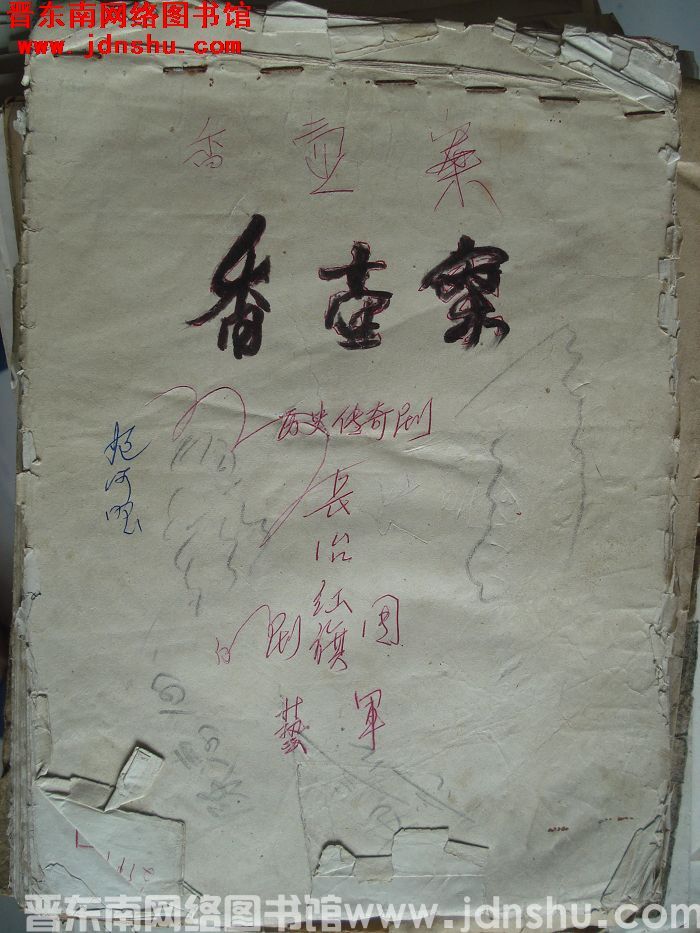 晋东南网络图书馆
www.jdnshu.com
香壶案
香壶案
历史传奇剧
长冶
红旗
剧团
艺军
晋东南网络图书馆www.jdnshu.com